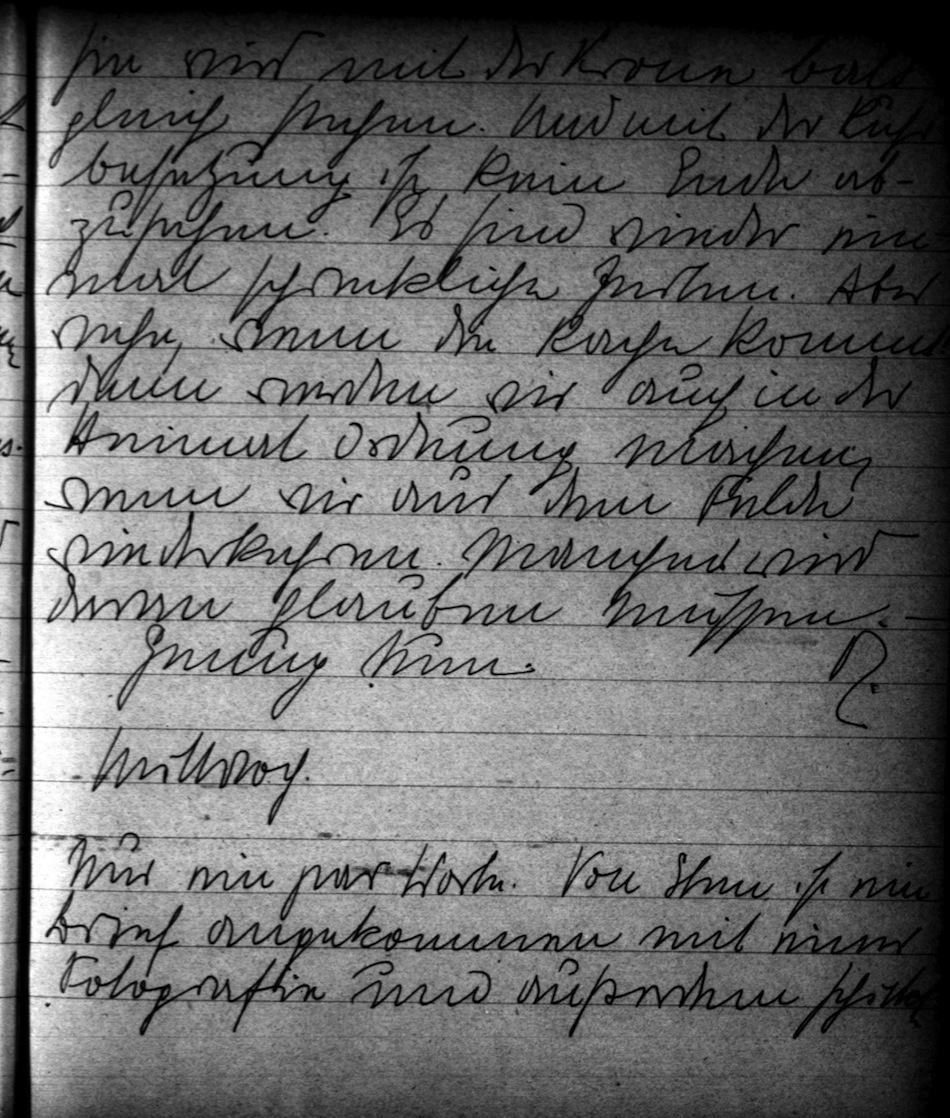 sie wird mit der Krone bald
gleich stehen. Und mit der Ruhr
besetzung ist kein Ende ab-
zusehen. Es sind wieder ein
mal schreckliche Zeiten. Aber
wehe, wenn die Rache kommt
dann werden wir auch in der
Heimat Ordnung machen,
wenn wir aus dem Felde
wiederkehren. Mancher wird
daran glauben müssen. –
Genug nun.
Mittwoch.
Nur ein par Worte. Von ist ein
Brief angekommen mit einer
Fotografie und außerdem schickt